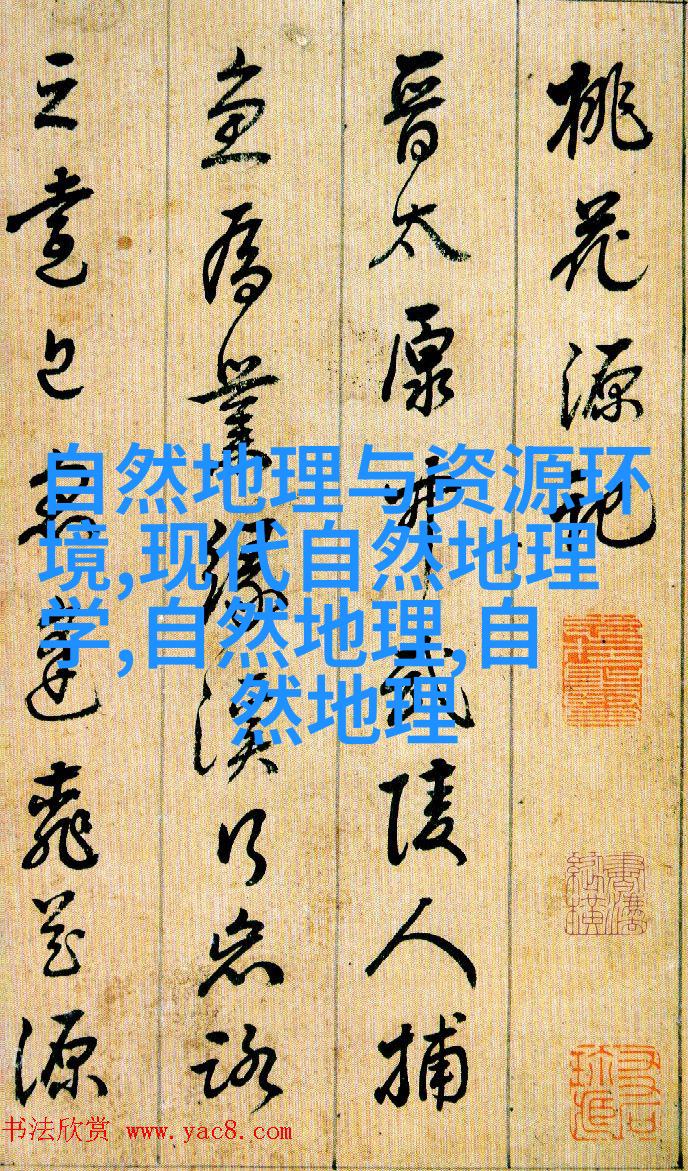 桃花源記
晉太原中武陵人捕
魚為業緣溪行忘路
之遠近忽逢花源
自然地理与资源环
境,现代自然地理
学,自然地理,自
然地理
书法欣赏 www.yac8.com